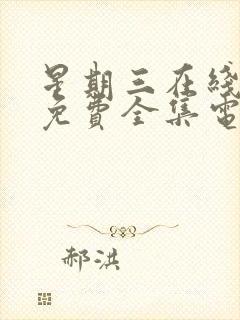 星期三在线
免費全集電
郝洪